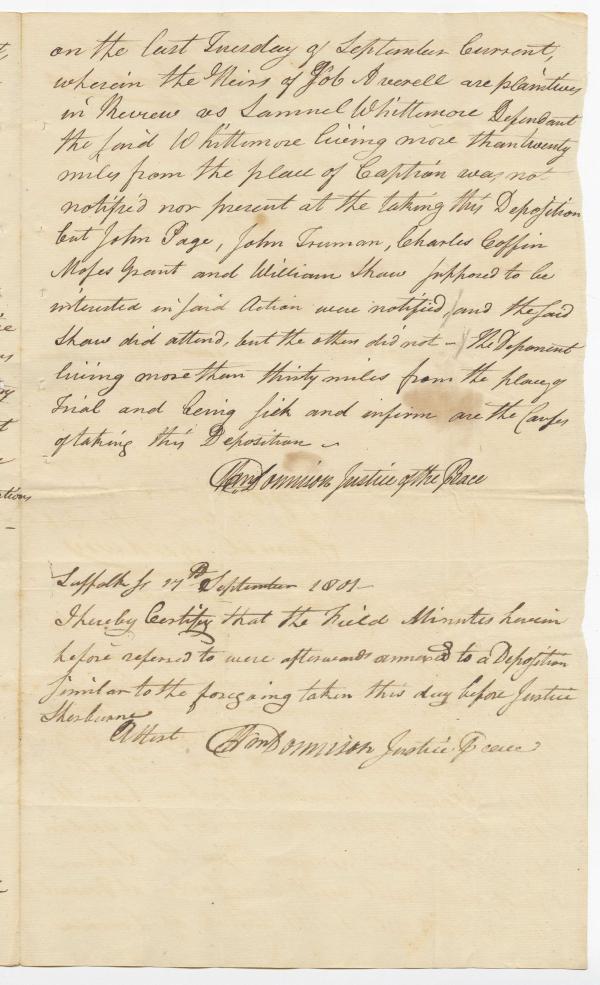 on the last Tuesday of September Current,
wherein the Heirs of Job Averell are plaintives
in Review vs Samuel Whittemore Defendant
the said Whittemore living more than twenty
miles from the place of Caption was not
notified nor present at the taking this Deposition
but John Page, John Truman, Charles Coffin
Moses Grant and William Shaw supposed to be
interested in said Action were notified, and the said
Shaw did attend, but the others did not — The Deponent
living more than thirty miles from the place of
Trial and being sick and infirm are the Causes
of taking this Deposition —
Wm Donnison Justice of the Peace
Suffolk Ss 17th September 1801—
I hereby Certify that the Field Minutes herein
before referred to were afterwards annexed to a Deposition
similar to the foregoing taken this day before Justice
Sherburne
Attest Wm Donnison Justice Peace